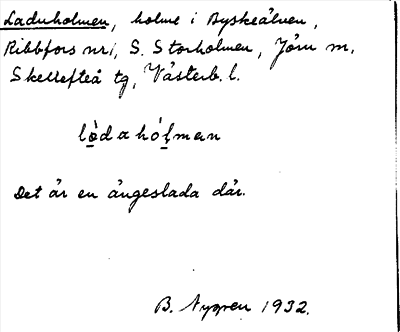 Laduholmen, holme i Byskeälven,
Ribbfors nr 1, S. Storholmen, Jörn m.
Skellefteå tg, Västerb. l.
lò̲dahól̲man
Det är en ängeslada där.
B. Nygren 1932.